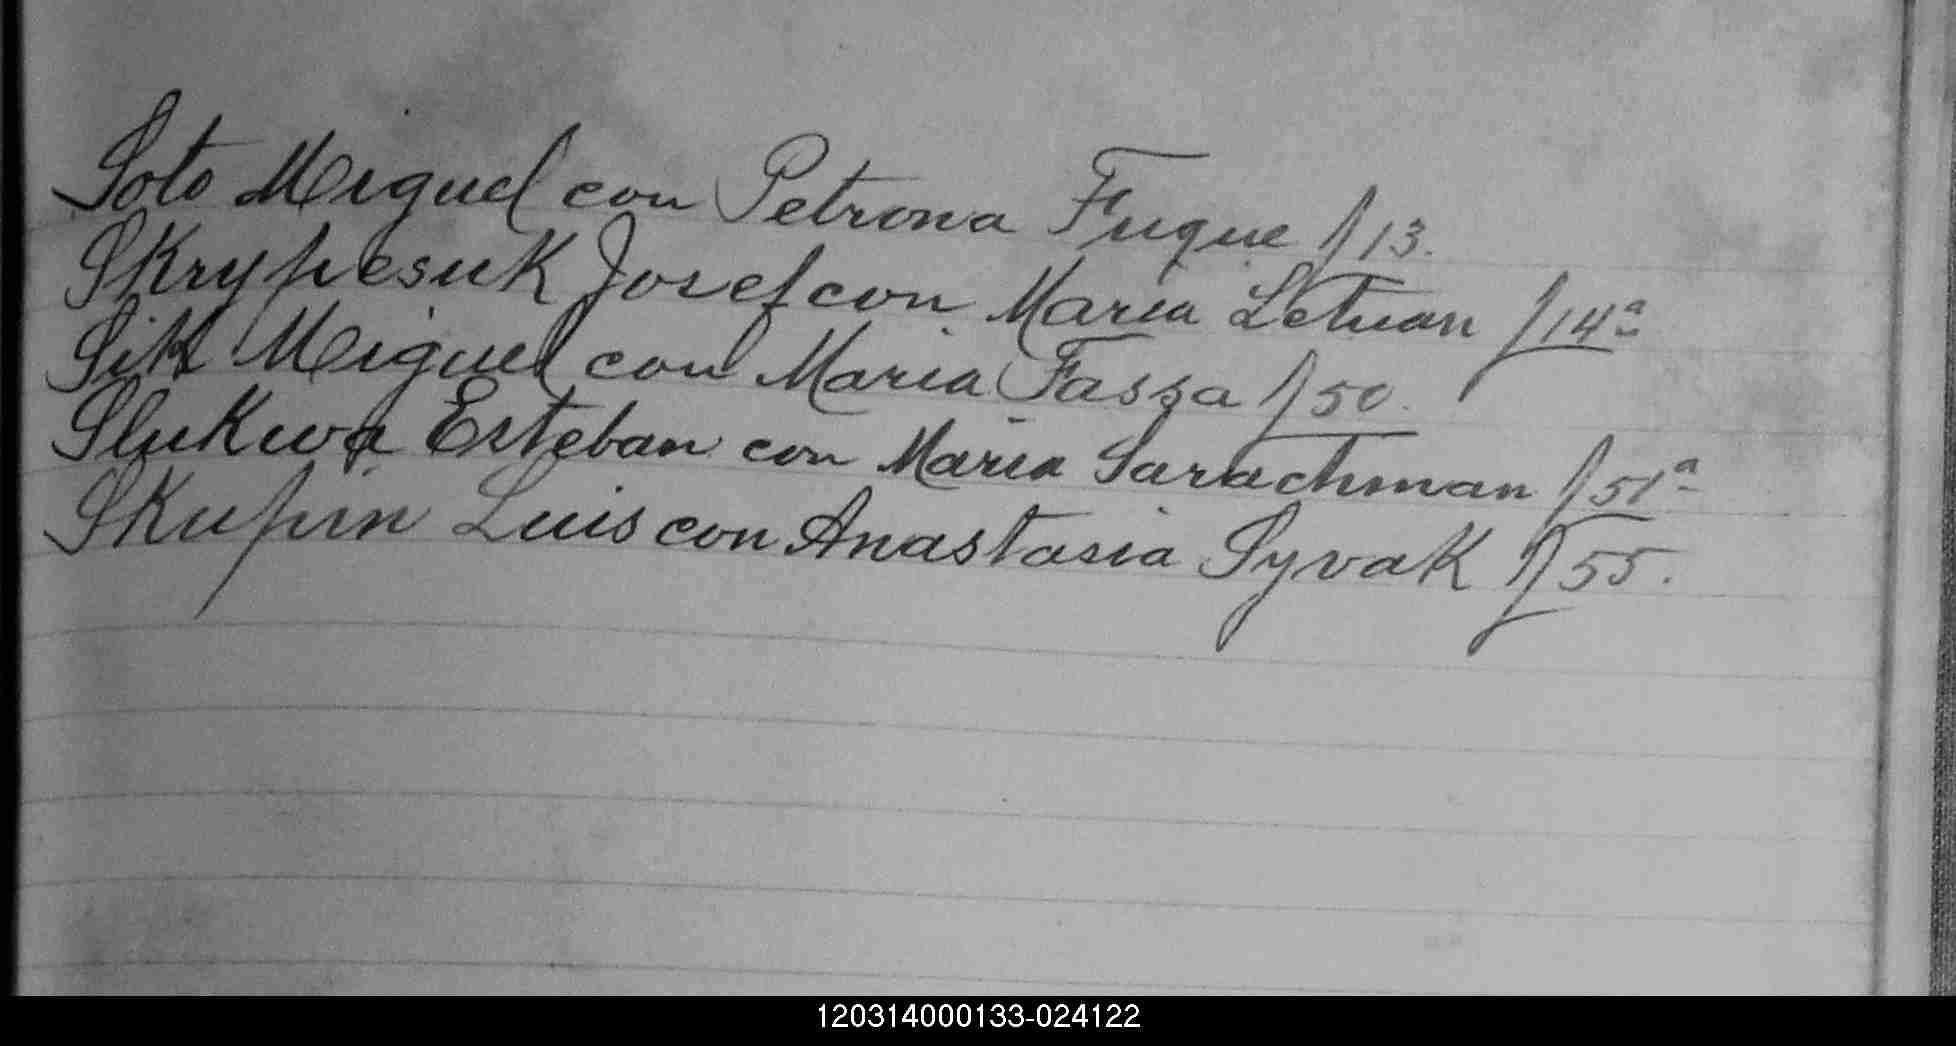 Soto Miguel con Petrona Fuque f 13.
Skrypesuk Josef con Maria Letwan f 14ª
Sik Miguel con Maria Fassa f 50.
Slukwa Esteban con Maria Sarachman f 51ª
Skupin Luis con Anastasia Syvak f 55.
120314000133-024122